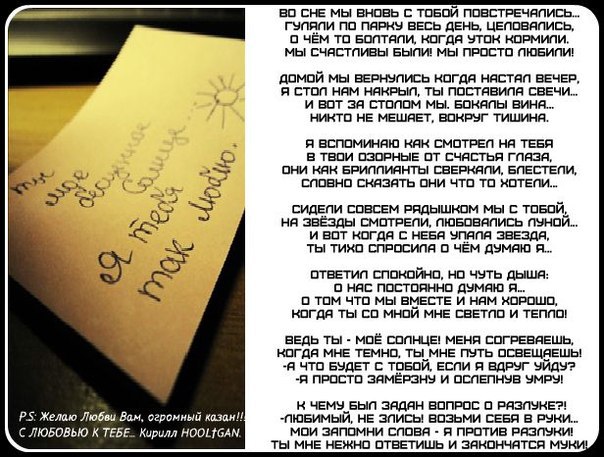 ты
моё
бесценное
Солнце...
Я тебя
так Люблю.
P.S: Желаю Любви Вам, огромный казан!!!
С ЛЮБОВЬЮ К ТЕБЕ... Кирилл HOOL†GAN.
ВО СНЕ МЫ ВНОВЬ С ТОБОЙ ПОВСТРЕЧАЛИСЬ...
ГУЛЯЛИ ПО ПАРКУ ВЕСЬ ДЕНЬ, ЦЕЛОВАЛИСЬ,
О ЧЁМ ТО БОЛТАЛИ, КОГДА УТОК КОРМИЛИ.
МЫ СЧАСТЛИВЫ БЫЛИ! МЫ ПРОСТО ЛЮБИЛИ!
ДОМОЙ МЫ ВЕРНУЛИСЬ КОГДА НАСТАЛ ВЕЧЕР,
Я СТОЛ НАМ НАКРЫЛ, ТЫ ПОСТАВИЛА СВЕЧИ...
И ВОТ ЗА СТОЛОМ МЫ. БОКАЛЫ ВИНА...
НИКТО НЕ МЕШАЕТ, ВОКРУГ ТИШИНА.
Я ВСПОМИНАЮ КАК СМОТРЕЛ НА ТЕБЯ
В ТВОИ ОЗОРНЫЕ ОТ СЧАСТЬЯ ГЛАЗА,
ОНИ КАК БРИЛЛИАНТЫ СВЕРКАЛИ, БЛЕСТЕЛИ,
СЛОВНО СКАЗАТЬ ОНИ ЧТО ТО ХОТЕЛИ...
СИДЕЛИ СОВСЕМ РЯДЫШКОМ МЫ С ТОБОЙ,
НА ЗВЁЗДЫ СМОТРЕЛИ, ЛЮБОВАЛИСЬ ЛУНОЙ...
И ВОТ КОГДА С НЕБА УПАЛА ЗВЕЗДА,
ТЫ ТИХО СПРОСИЛА О ЧЁМ ДУМАЮ Я...
ОТВЕТИЛ СПОКОЙНО, НО ЧУТЬ ДЫША:
О НАС ПОСТОЯННО ДУМАЮ Я...
О ТОМ ЧТО МЫ ВМЕСТЕ И НАМ ХОРОШО,
КОГДА ТЫ СО МНОЙ МНЕ СВЕТЛО И ТЕПЛО!
ВЕДЬ ТЫ - МОЁ СОЛНЦЕ! МЕНЯ СОГРЕВАЕШЬ,
КОГДА МНЕ ТЕМНО, ТЫ МНЕ ПУТЬ ОСВЕЩАЕШЬ!
-А ЧТО БУДЕТ С ТОБОЙ, ЕСЛИ Я ВДРУГ УЙДУ?
-Я ПРОСТО ЗАМЁРЗНУ И ОСЛЕПНУВ УМРУ!
К ЧЕМУ БЫЛ ЗАДАН ВОПРОС О РАЗЛУКЕ?!
-ЛЮБИМЫЙ, НЕ ЗЛИСЬ! ВОЗЬМИ СЕБЯ В РУКИ...
МОИ ЗАПОМНИ СЛОВА - Я ПРОТИВ РАЗЛУКИ!
ТЫ МНЕ НЕЖНО ОТВЕТИШЬ И ЗАКОНЧАТСЯ МУКИ!